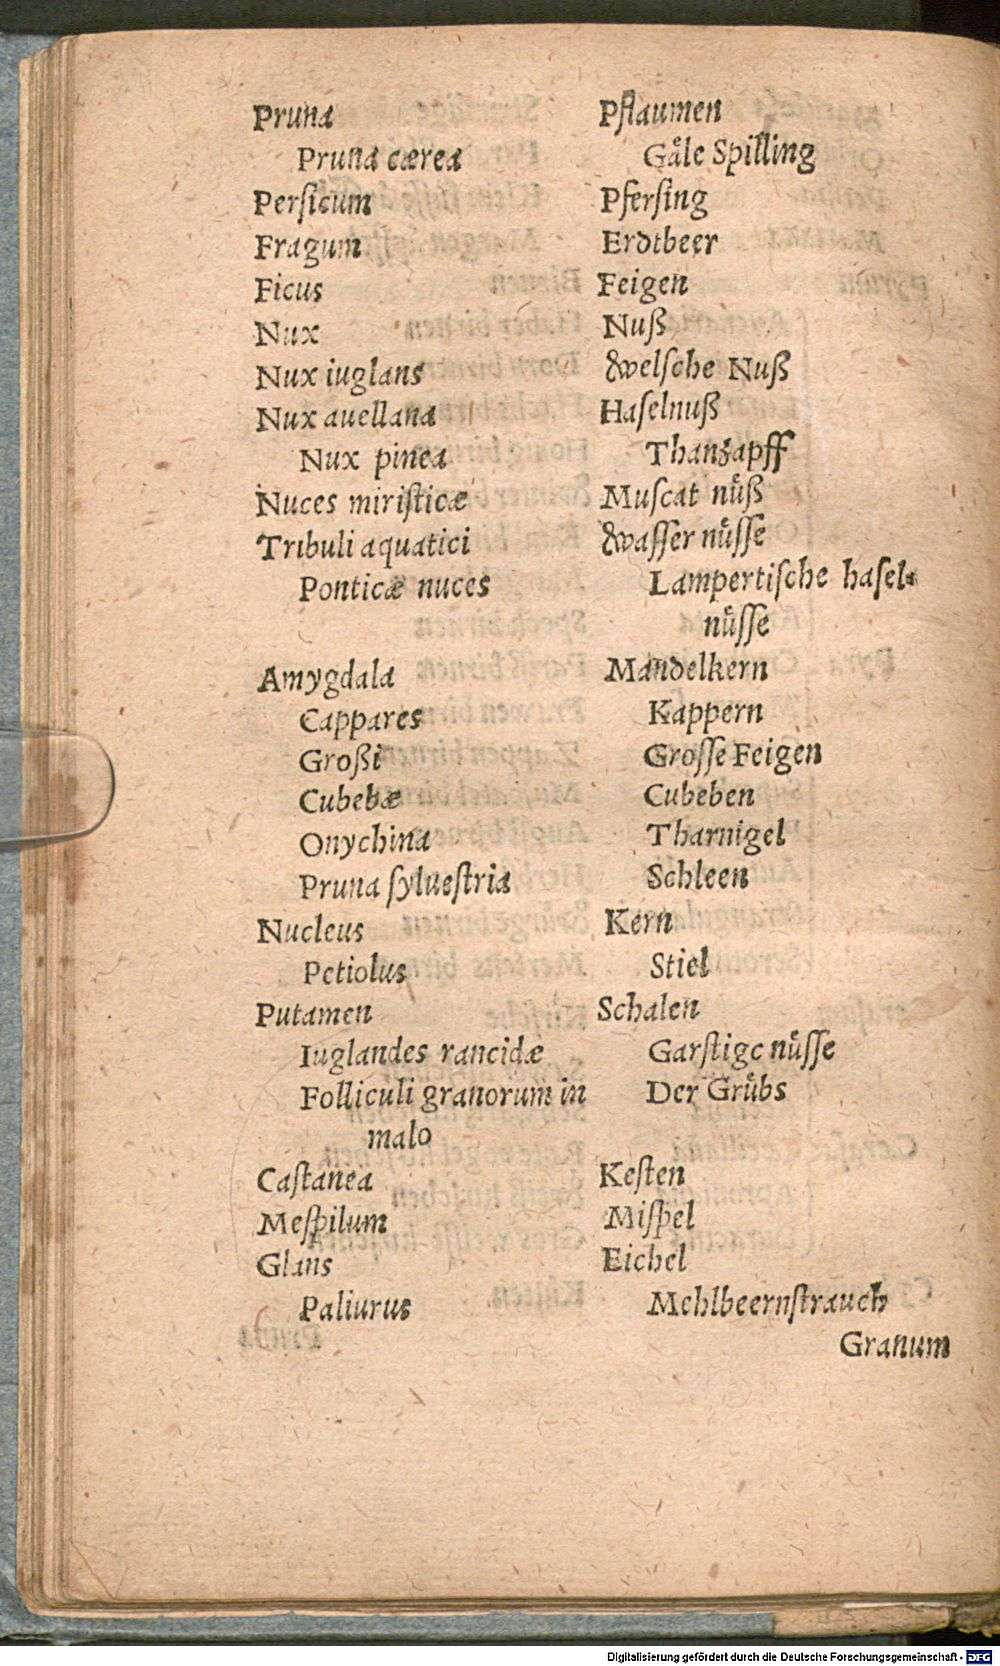 Pruna Pflaumen
Pruna cærea Gåle Spilling
Perſicum Pferſing
Fragum Erdtbeer
Ficus Feigen
Nux Nuß
Nux iuglans Welſche Nuß
Nux auellana Haſelnuß
Nux pinea Thanzapff
Nuces miriſticæ Muſcat nuͤß
Tribuli aquatici Waſſer nuͤſſe
Ponticæ nuces Lampertiſche haſel⸗
nuͤſſe
Amygdala Mandelkern
Cappares Kappern
Großi Groſſe Feigen
Cubebæ Cubeben
Onychina Tharnigel
Pruna ſylueſtria Schleen
Nucleus Kern
Petiolus Stiel
Putamen Schalen
Iuglandes rancidæ Garſtige nuͤſſe
Folliculi granorum in Der Gruͤbs
malo
Caſtanea Keſten
Meſpilum Miſpel
Glans Eichel
Paliurus Mehlbeernſtrauch
Granum
Digitalisierung gefördert durch die Deutsche Forschungsgemeinschaft - DFG